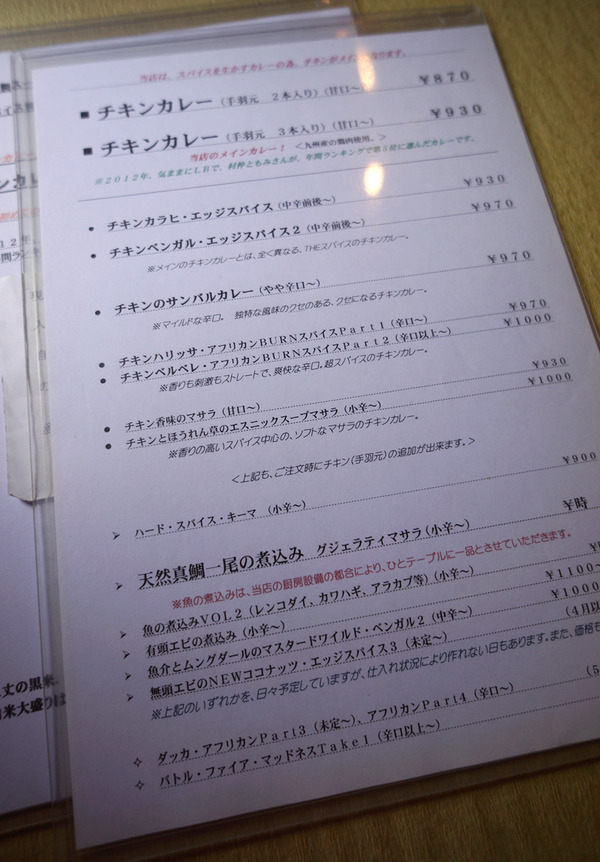 当店は、スパイスを生かすカレーの為、チキンがメインになります。
■ チキンカレー（手羽元　２本入り）（甘口～） ￥８７０
■ チキンカレー（手羽元　３本入り）（甘口～） ￥９３０
当店のメインカレー！　＜九州産の鶏肉使用。＞
※２０１２年、気ままにＬＢで、利枠ともみさんが、年間ランキングで第５位に選んだカレーです。
● チキンカラヒ・エッジスパイス（中辛前後～） ￥９３０
● チキンベンガル・エッジスパイス２（中辛前後～） ￥９７０
※メインのチキンカレーとは、全く異なる、THEスパイスのチキンカレー。
● チキンのサンバルカレー（やや辛口～） ￥９７０
※マイルドな辛口。　独特な風味のクセのある、クセになるチキンカレー。
● チキンハリッサ・アフリカンＢＵＲＮスパイスＰａｒｔ１（辛口～） ￥９７０
● チキンベルベレ・アフリカンＢＵＲＮスパイスＰａｒｔ２（辛口以上～） ￥１０００
※香りも刺激もストレートで、爽快な辛口。超スパイスのチキンカレー。
● チキン香味のマサラ（甘口～） ￥９３０
● チキンとほうれん草のエスニックスープマサラ（小辛～） ￥１０００
※香りの高いスパイス中心の、ソフトなマサラのチキンカレー。
＜上記も、ご注文時にチキン（手羽元）の追加が出来ます。＞
➢ ハード・スパイス・キーマ　（小辛～） ￥９００
➢ 天然真鯛一尾の煮込み　グジェラティマサラ（小辛～） ￥時
※魚の煮込みは、当店の厨房設備の都合により、ひとテーブルに一品とさせていただきます。
➢ 魚の煮込みＶＯＬ２（レンコダイ、カワハギ、アラカブ等）（小辛～）
➢ 有頭エビの煮込み（小辛～） ￥１１００～
➢ 魚介とムングダールのマスタードワイルド・ベンガル２（中辛～） ￥１０００
➢ 無頭エビのＮＥＷココナッツ・エッジスパイス３（未定～） （４月以
※上記のいずれかを、日々予定していますが、仕入れ状況により作れない日もあります。また、価格も
✧ ダッカ・アフリカンＰａｒｔ３（未定～）、アフリカンＰａｒｔ４（辛口～） （５
✧ バトル・ファイア・マッドネスＴａｋｅ１（辛口以上～）
丈の黒米、
米大盛りは